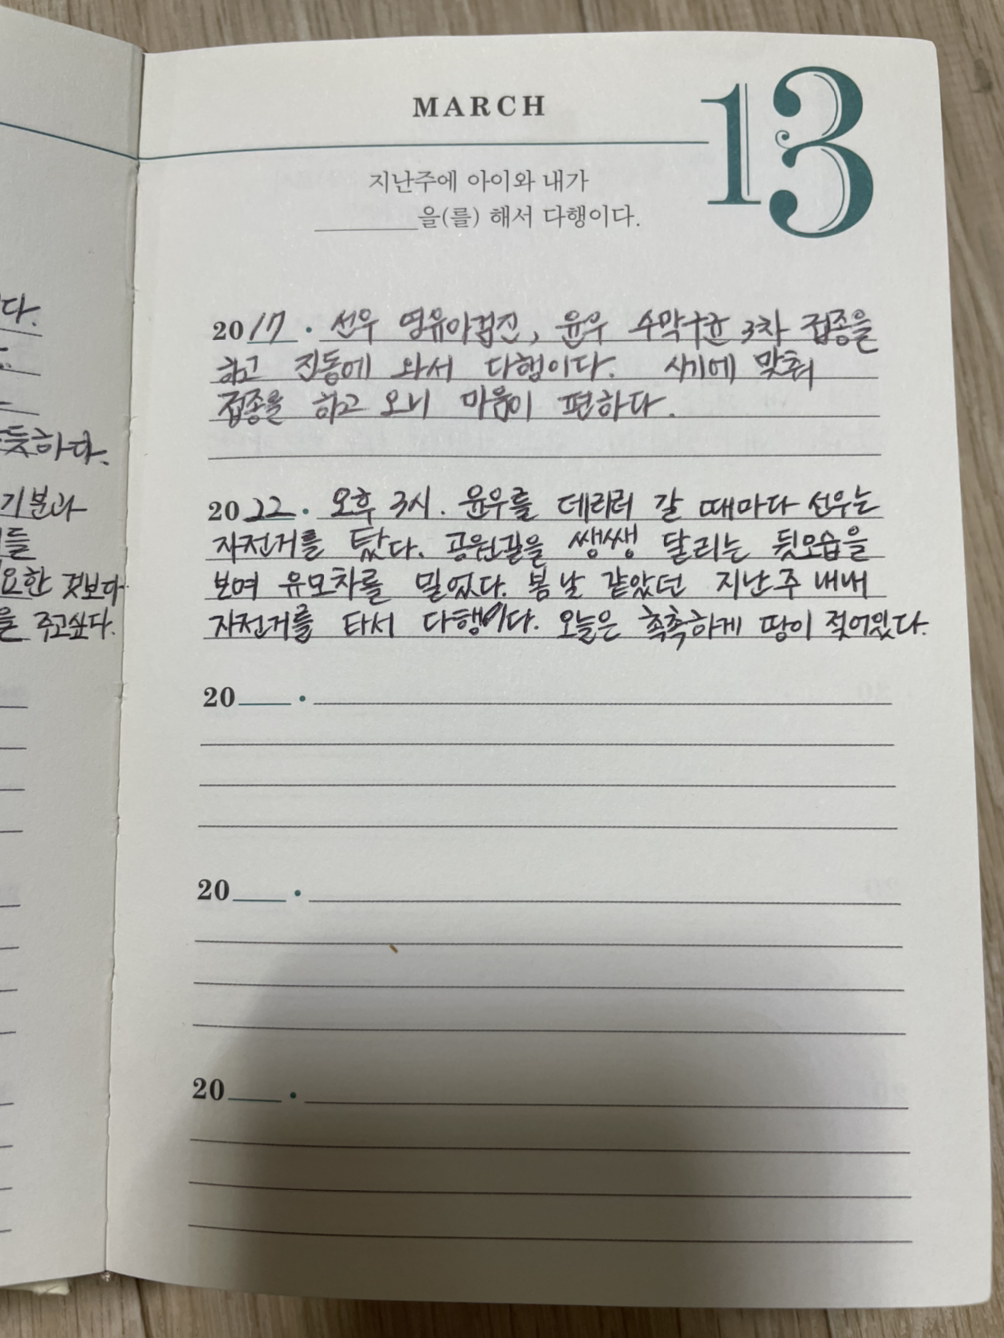 다.
듯하다.
기분과
들
요한 것보다
을 주고싶다.
MARCH
13
지난주에 아이와 내가
______을(를) 해서 다행이다.
2017 · 선우 영유아검진, 윤우 수막구균 3차 접종을
하고 진동에 와서 다행이다. 시기에 맞춰
접종을 하고 오니 마음이 편하다.
2022 · 오후 3시. 윤우를 데리러 갈 때마다 선우는
자전거를 탔다. 공원길을 쌩쌩 달리는 뒷모습을
보며 유모차를 밀었다. 봄날 같았던 지난주 내내
자전거를 타서 다행이다. 오늘은 촉촉하게 땅이 젖어있다.
20___ ·
20___ ·
20___ ·